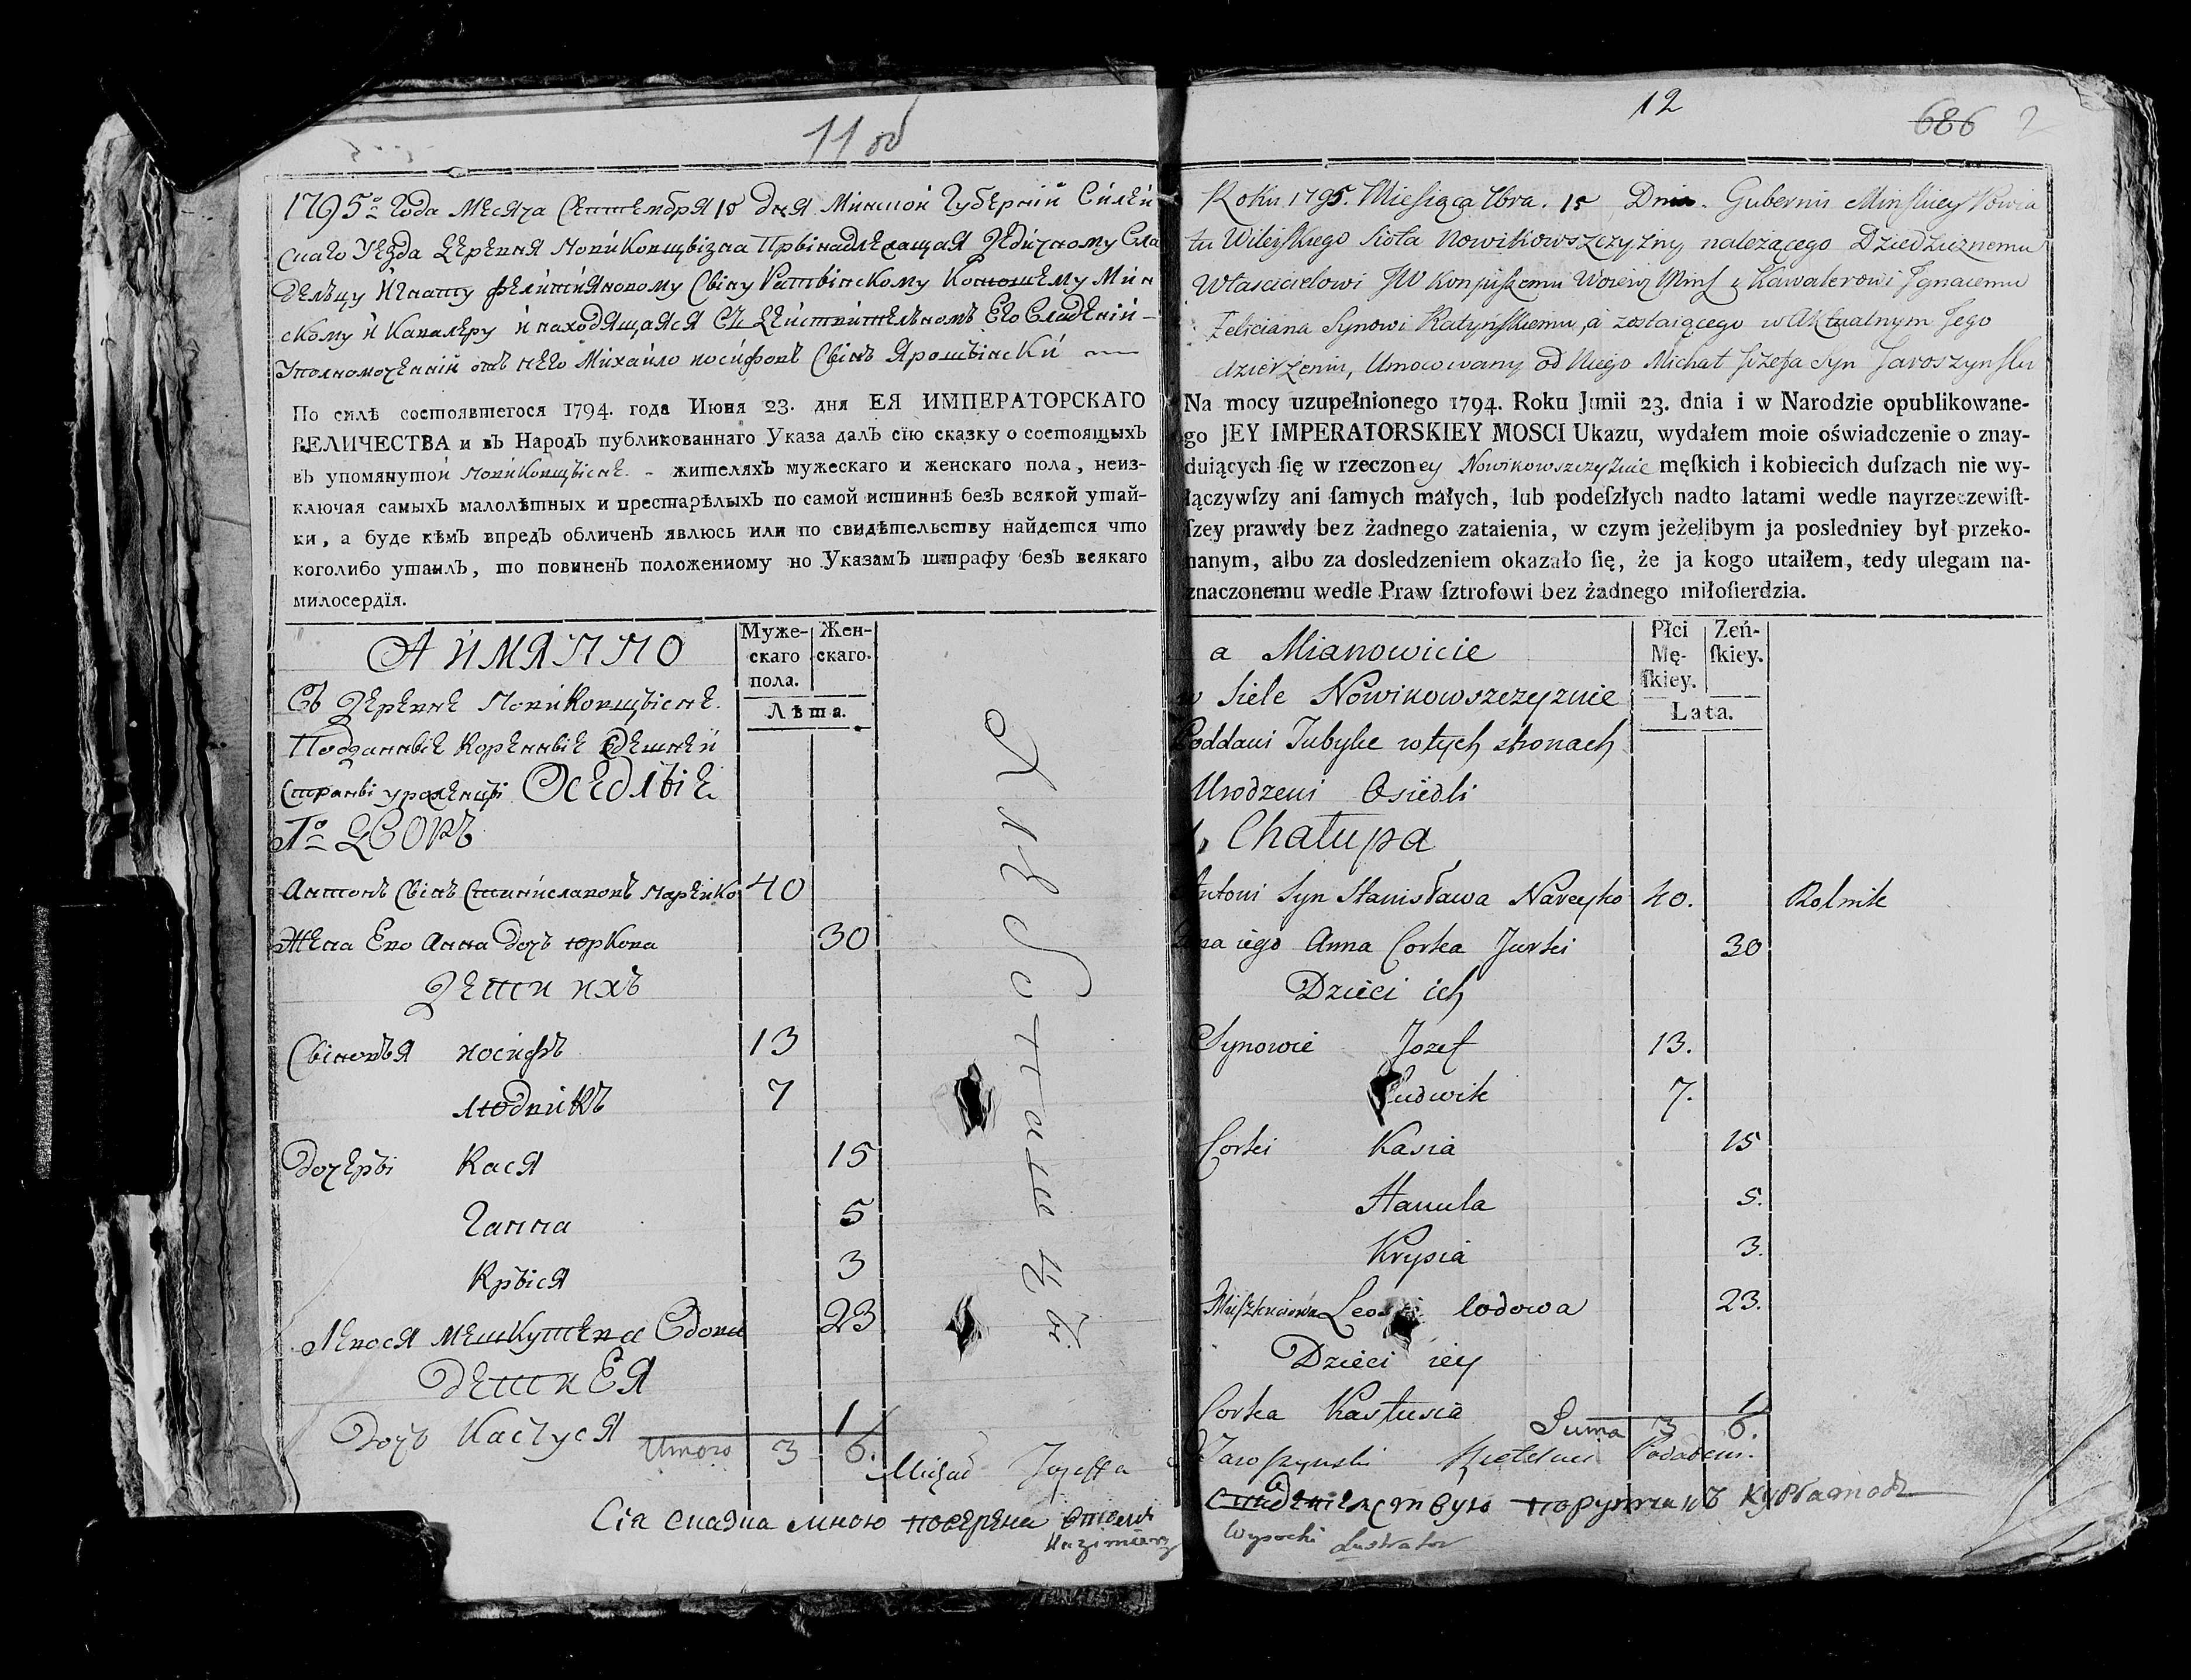 11 об
1795го Года Месяца Септембря 15 дня Минской Губерний Вилей
скаго Уезда Деревня Новиковщызна Прынадлежащая Дедичному Вла
дельцу Игнату Фелицияновому Сыну Ратынскому Конюшему Мин
скому и Кавалеру и находящаяся въ действительномъ Его Владений
Уполномоченний отъ него Михайло иосифовъ Сынъ Ярошынский
По силѣ состоявшегося 1794. года Июня 23. дня ЕЯ ИМПЕРАТОРСКАГО
ВЕЛИЧЕСТВА и въ Народъ публикованнаго Указа далъ сїю сказку о состоящыхъ
въ упомянутой Новиковщысне - жителяхъ мужескаго и женскаго пола, неиз-
ключая самыхъ малолѣтныхъ и престарѣлыхъ по самой истиннѣ безъ всякой утай-
ки, а буде кѣмъ впредъ обличенъ явлюсь или по свидѣтельству найдется что
коголибо утаилъ, то повиненъ положенному по Указамъ штрафу безъ всякаго
милосердїя.
А ИМЯННО
Муже-
скаго
пола.
Жен-
скаго.
Лѣта.
Въ Деревне Новиковщысне.
Подданные Коренные Здешней
Страны уроженцы Оседлые
1о ДВОРЪ
Антонъ Сынъ Станиславовъ Нарейко 40
Жена Ево Анна дочь юркова 30
Дети ихъ
Сыновья иосифъ 13
людвикъ 7
дочеры Кася 15
Ганна 5
Крыся 3
Левося мешкутевна Вдова 23
дети Ея
Дочь Кастуся 1
Итого 3 6.
Michał Jozeffa
Сiя сказка мною поверена
Kazimierz
12
686 2
Roku 1795. Miesiąca 7bra. 15 Dnia. Gubernii Minskiey Powia
tu Wileyskiego Sioła Nowikowszczyzny należącego Dziedzicznemu
Właścicielowi JW Koniuszemu Woiew Mins i Kawalerowi Ignacemu
Feliciana Synowi Ratynskiemu, a zostaiącego w Aktualnym Jego
dzierżeniu, Umocowany od Niego Michał Józefa Syn Jaroszynski
Na mocy uzupełnionego 1794. Roku Junii 23. dnia i w Narodzie opublikowane-
go JEY IMPERATORSKIEY MOSCI Ukazu, wydałem moie oświadczenie o znay-
duiących ſię w rzeczoney Nowikowszczyznie męſkich i kobiecich duſzach nie wy-
łączywſzy ani ſamych małych, lub podeſzłych nadto latami wedle nayrzeczewiſt-
ſzey prawdy bez żadnego zataienia, w czym jeżelibym ja posledniey był przeko-
nanym, albo za dosledzeniem okazało ſię, że ja kogo utaiłem, tedy ulegam na-
znaczonemu wedle Praw ſztrofowi bez żadnego miłoſierdzia.
a Mianowicie
Płci
Mę-
ſkiey.
Zeń-
ſkiey.
Lata.
w Siele Nowikowszczyznie
Poddani Tubylce w tych stronach
Urodzeni Osiedli
1, Chałupa
Antoni Syn Stanisława Nareyko 40. Rolnik
Żona iego Anna Corka Jurki 30
Dzieci ich
Synowie Jozef 13.
Ludwik 7.
Corki Kasia 15
Hanula 5.
Krysia 3.
Leosia wdowa 23.
Dzieci iey
Corka Kastusia 1
Suma 3 6.
Jaroszynski
Wysocki Lustrator